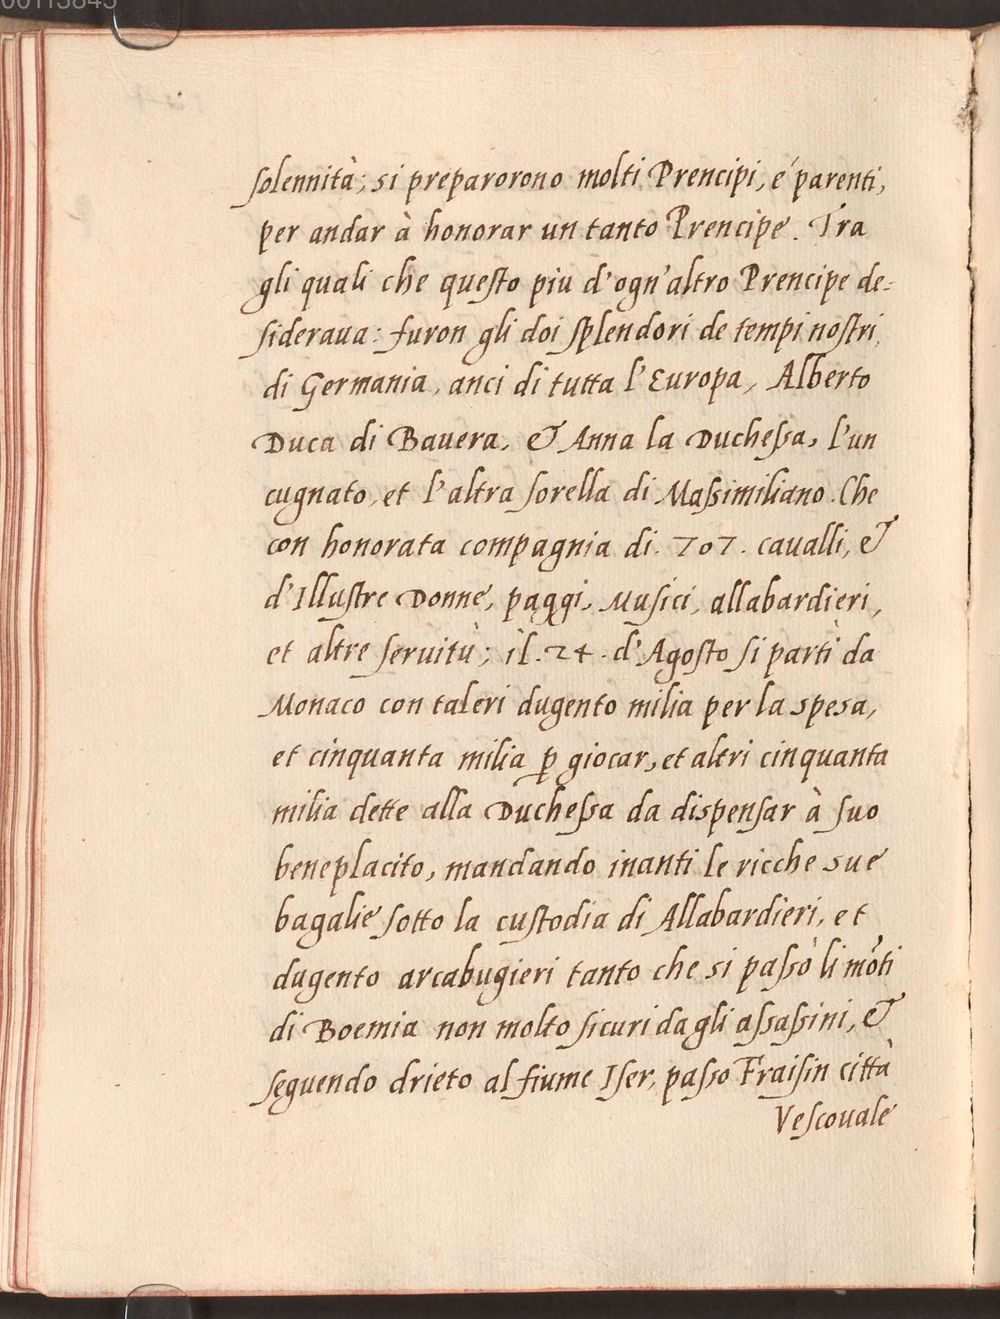 solennità; si preparorono molti Prencipi, é parenti,
per andar à honorar un tanto Prencipe. Tra
gli quali che questo piu d'ogn'altro Prencipe de-
sideraua: furon gli doi splendori de tempi nostri
di Germania, anci di tutta l'Europa, Alberto
Duca di Bauera, & Anna la Duchessa, l'un
cugnato, et l'altra sorella di Massimiliano. Che
con honorata compagnia di .707. caualli, &
d'Illustre Donne, paggi, Musici, allabardieri,
et altre seruitù; il .24. d'Agosto si partì da
Monaco con taleri dugento milia per la spesa,
et cinquanta milia ꝑ giocar, et altri cinquanta
milia dette alla Duchessa da dispensar à suo
beneplacito, mandando inanti le ricche sue
bagalie sotto la custodia di Allabardieri, et
dugento arcabugieri tanto che si passò li mõti
di Boemia non molto sicuri dagli assassini, &
seguendo drieto al fiume Iser, passo Fraisin città
Vescouale